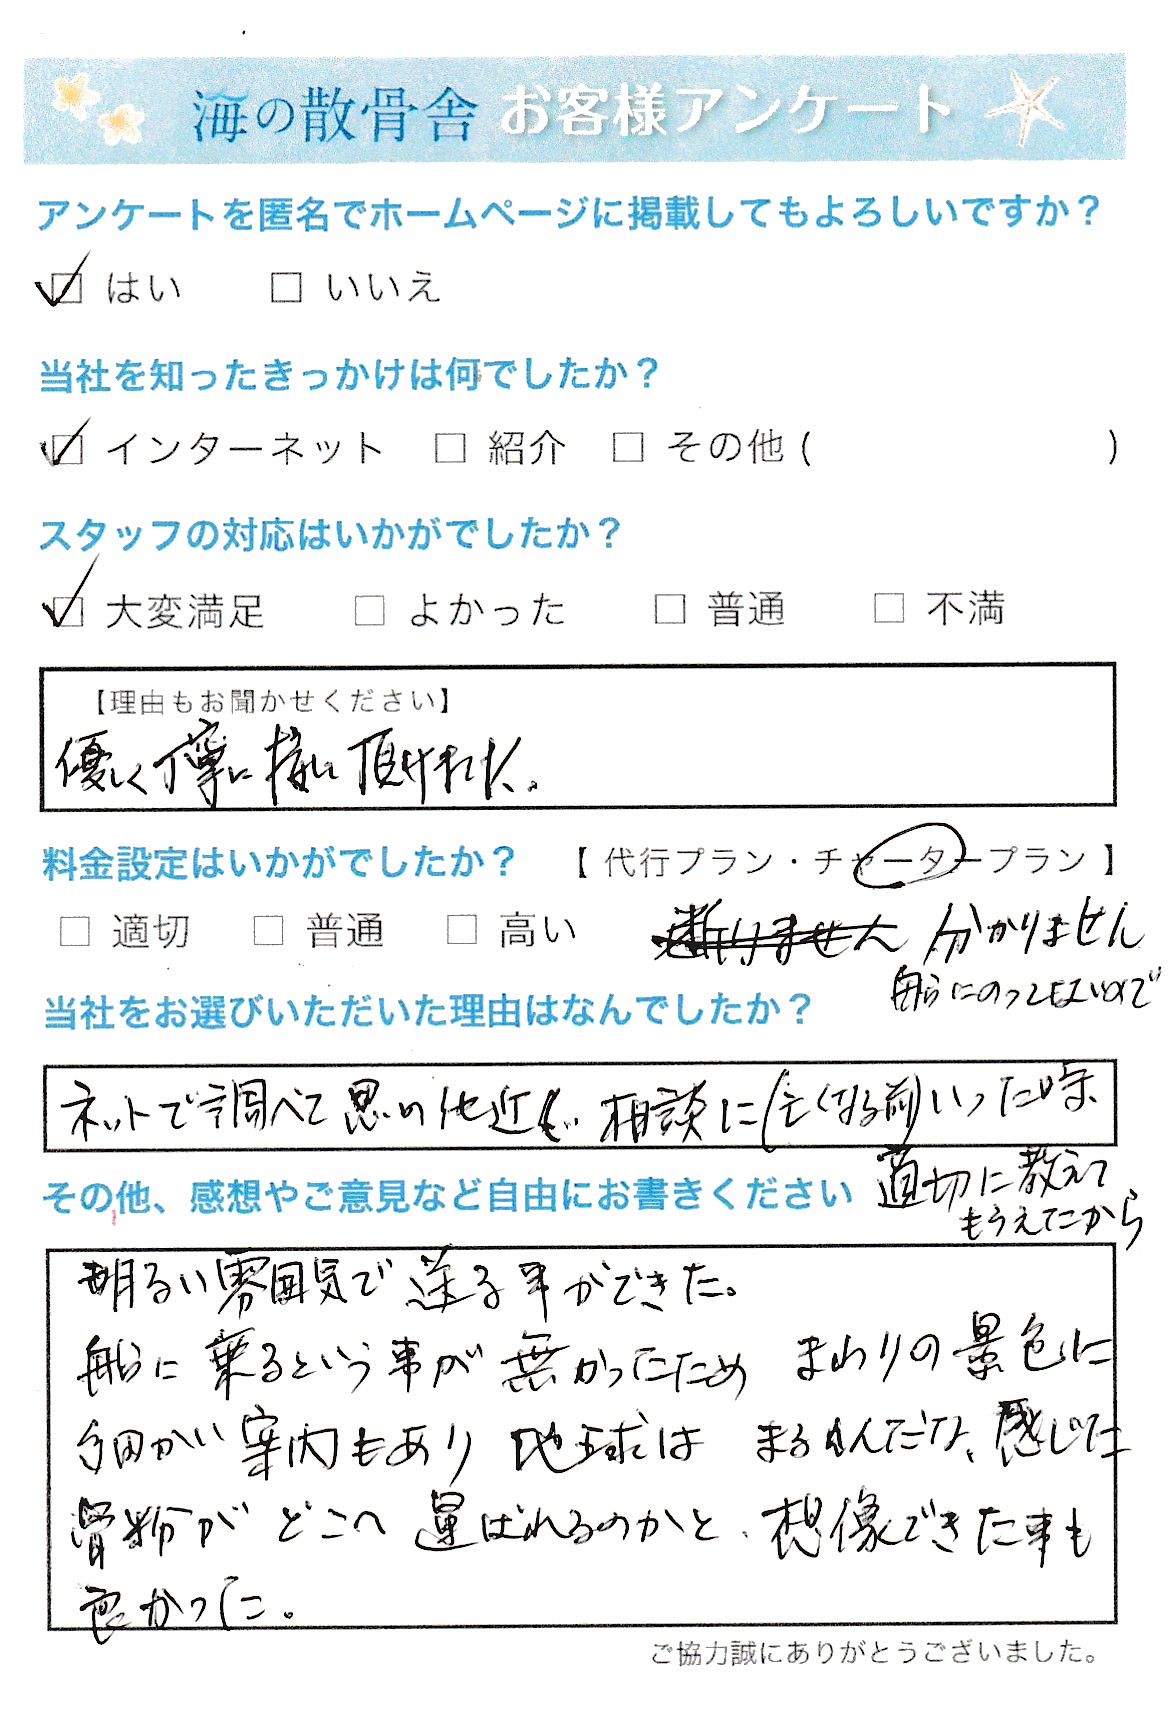 海の散骨舎 お客様アンケート
アンケートを匿名でホームページに掲載してもよろしいですか?
はい いいえ
当社を知ったきっかけは何でしたか?
インターネット 紹介 その他 ( )
スタッフの対応はいかがでしたか?
大変満足 よかった 普通 不満
【理由もお聞かせください】
優しく丁寧に接して頂けました。
料金設定はいかがでしたか? 【 代行プラン・チャータープラン 】
適切 普通 高い 分かりません
船にのってないので
当社をお選びいただいた理由はなんでしたか?
ネットで調べて思いの他近く 相談に(亡くなる前)いった時
適切に教えて
もらえてたから
その他、感想やご意見など自由にお書きください
明るい雰囲気で送る事ができた。
船に乗るという事が無かったため まわりの景色に
細かい案内もあり 地球は まるいんだな、感じた
骨粉が どこへ 運ばれるのかと、想像できた事も
良かった。
ご協力誠にありがとうございました。